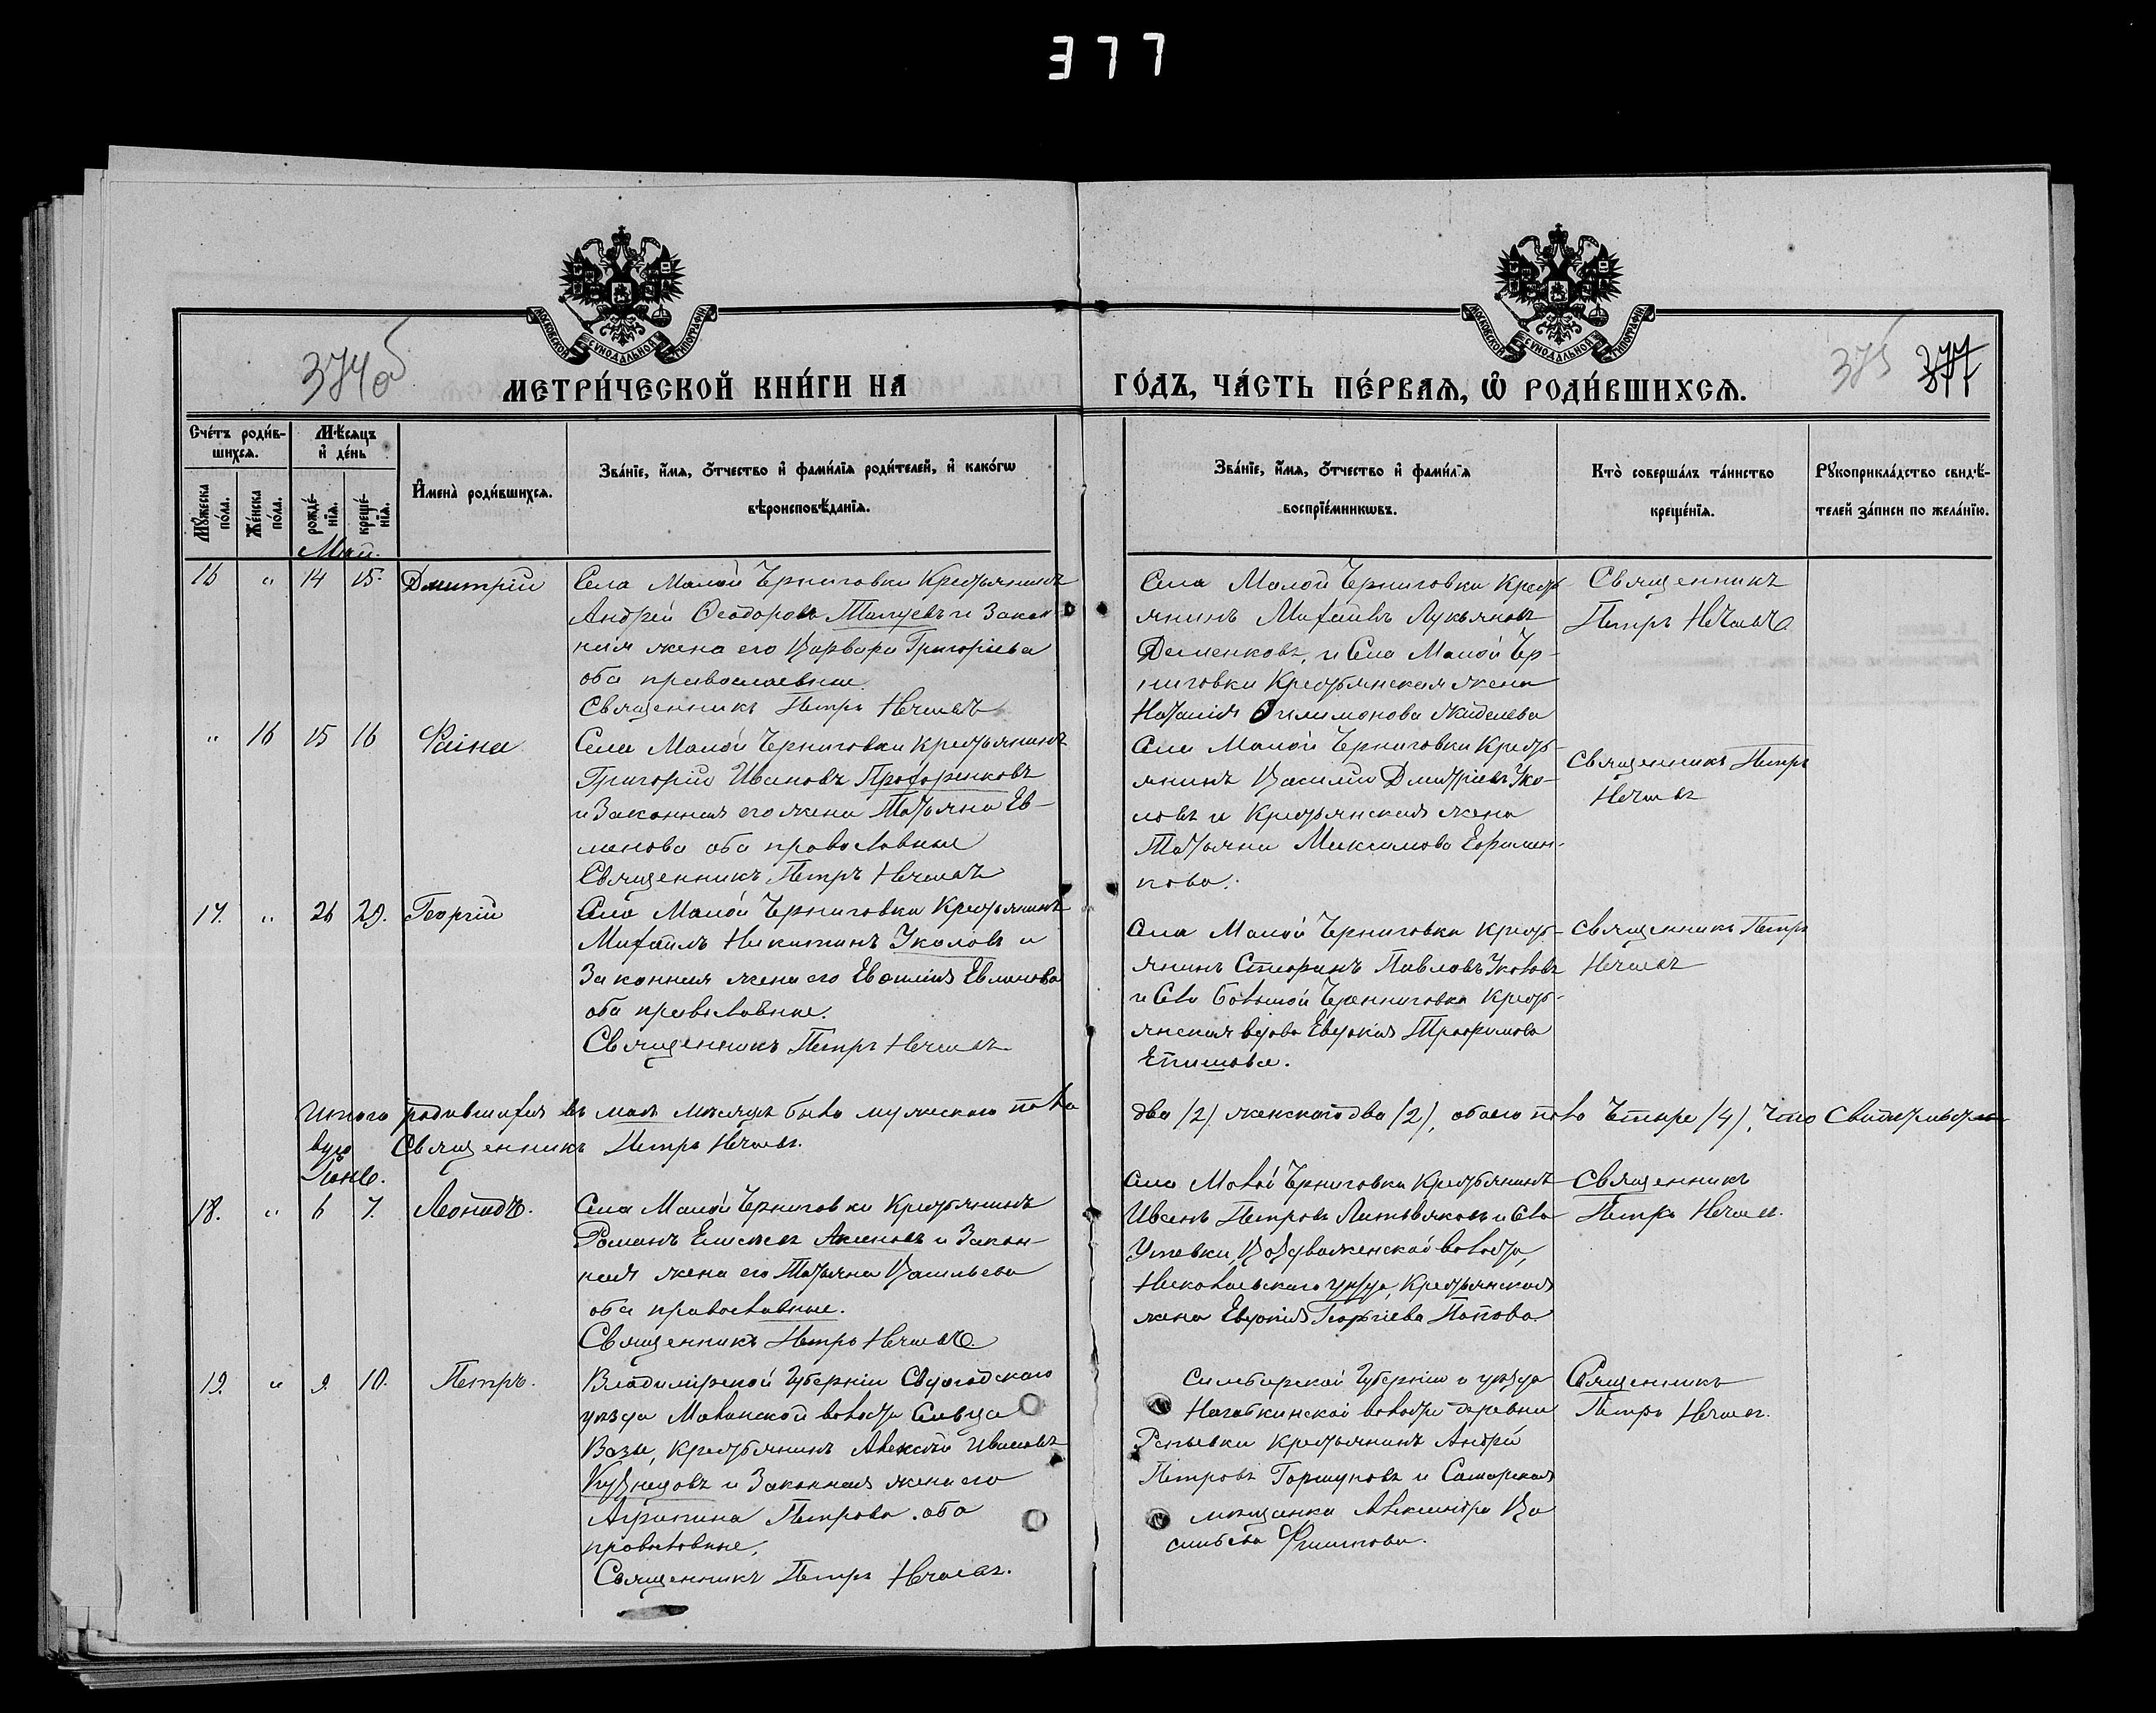 377
МОСКОВСКОЙ СѴНОДАЛЬНОЙ ТИПОГРАФІИ
МОСКОВСКОЙ СѴНОДАЛЬНОЙ ТИПОГРАФІИ
374об
375 377
МЕТРИ́ЧЕСКОЙ КНИ́ГИ НА
ГО́ДЪ, ЧА́СТЬ ПЕ́РВАѦ, Ѡ҆ РОДИ́ВШИХСѦ.
Сче́тъ роди́в-
шихсѧ.
Мѣ́сяцъ
и҆ де́нь
Мꙋ́жеска
по́ла.
Же́нска
по́ла.
рожде́-
нїѧ.
креще́-
нїѧ.
И҆мена̀ роди́вшихсѧ.
Зва́нїе, и҆́мѧ, ѻ҆́тчество и҆ фами́лїѧ роди́телей, и҆ како́гѡ
вѣроисповѣ́данїѧ.
Зва́нїе, и҆́мѧ, ѻ҆́тчество и҆ фами́лїѧ
воспрїе́мникѡвъ.
Кто̀ соверша́лъ та́инство
креще́нїѧ.
Рꙋкоприкла́дство свидѣ́-
телей за́писи по жела́нїю.
Май.
16 " 14 15. Дмитрій
Села Малой Черниговки Крестьянинъ
Андрей Ѳеодоровъ и Закон-
ная жена его Варвара Григоріева
оба православные.
Священникъ Петръ Нечаевъ
Села Малой Черниговки Крест-
янинъ Михаилъ Лукьяновъ
Деменковъ, и Села Малой Чер-
ниговки Крестьянская жена
Наталія Филимонова
Священникъ
Петръ Нечаевъ
" 16 15 16 Раіна
Села Малой Черниговки Крестьянинъ
Григорій Ивановъ Прохоренковъ
и Законная его жена Татьяна Ев-
менова оба православные
Священникъ Петръ Нечаевъ
Села Малой Черниговки Крест-
янинъ Василій Дмитріевъ Уко-
ловъ и Крестьянская жена
Татьяна Максимова Ефримен-
кова.
Священникъ Петръ
Нечаевъ
17. " 26 29. Георгій
Села Малой Черниговки Крестьянинъ
Михаилъ Никитинъ Уколовъ и
Законная жена его Евдокія
оба православные.
Священникъ Петръ Нечаевъ
Села Малой Черниговки Крест-
янинъ Стефанъ Павловъ Уколовъ
и Села Большой Черниговки Крест-
янская вдова Евдокія Трофимова
Епишова.
Священникъ Петръ
Нечаевъ
Итого родившихся въ маѣ мѣсяцѣ было мужескаго пола
два (2) женскаго два (2), обоего пола четыре (4), что свидѣтельст-
вую Священникъ Петръ Нечаевъ.
Іюнь.
18. " 6 7. Леонидъ.
Села Малой Черниговки Крестьянинъ
Романъ Аксеновъ и Закон-
ная жена его Татьяна Васильева
оба православные.
Священникъ Петръ Нечаевъ
Села Малой Черниговки Крестьянинъ
Иванъ Петровъ Литвяковъ и Села
Утевки, Воздвиженской волости,
Николаевскаго уѣзда, Крестьянская
жена Евдокія Георгіева Попова.
Священникъ
Петръ Нечаевъ.
19. " 9. 10. Петръ.
Владимірской губерніи Судогодскаго
уѣзда волости Сельца
Крестьянинъ Алексѣй Ивановъ
Кузнецовъ и Законная жена его
Агрипина Петрова. оба
православные.
Священникъ Петръ Нечаевъ.
Симбирской губерніи и уѣзда
Нагаткинской волости деревни
Репьевки Крестьянинъ Андрей
Петровъ Горшуновъ и Самарская
мѣщанка Александра Ва-
сильева Филипова.
Священникъ
Петръ Нечаевъ.